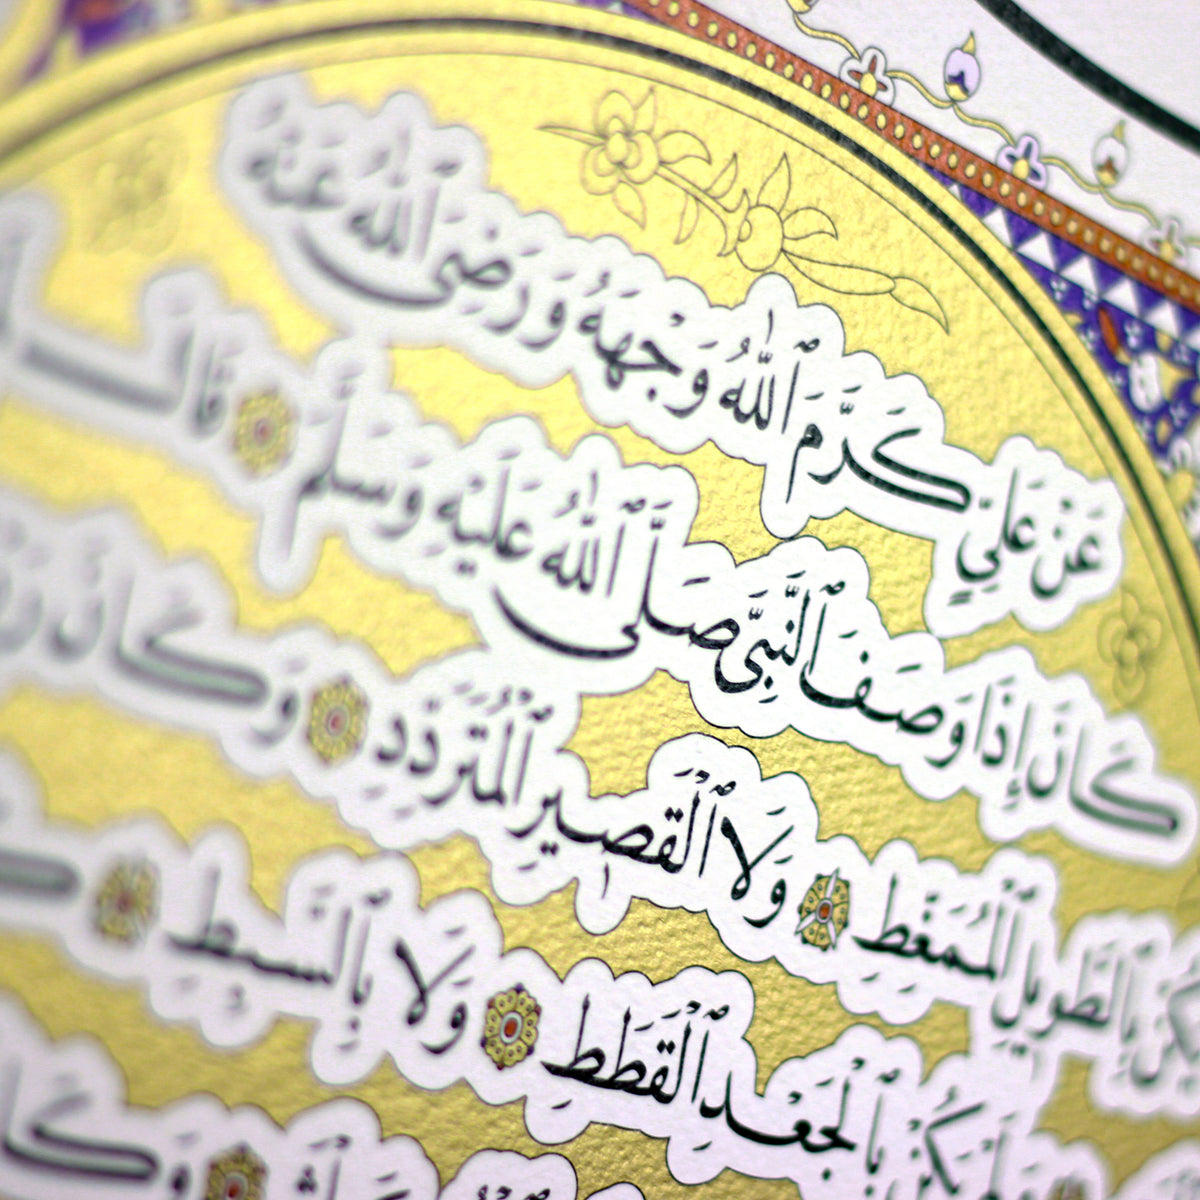 عَنْ عَلِيٍّ كَرَّمَ ٱللّٰهُ وَجْهَهُ وَرَضِىَ ٱللّٰهُ عَنْهُ
كَانَ إِذَا وَصَفَ ٱلنَّبِىَّ صَلَّى ٱللّٰهُ عَلَيْهِ وَسَلَّمَ قَالَ
بِٱلطَّوِيلِ ٱلْمُمَغَّطِ وَلَا ٱلْقَصِيرِ ٱلْمُتَرَدِّدِ وَكَانَ
يَكُنْ بِٱلْجَعْدِ ٱلْقَطَطِ وَلَا بِٱلسَّبِطِ